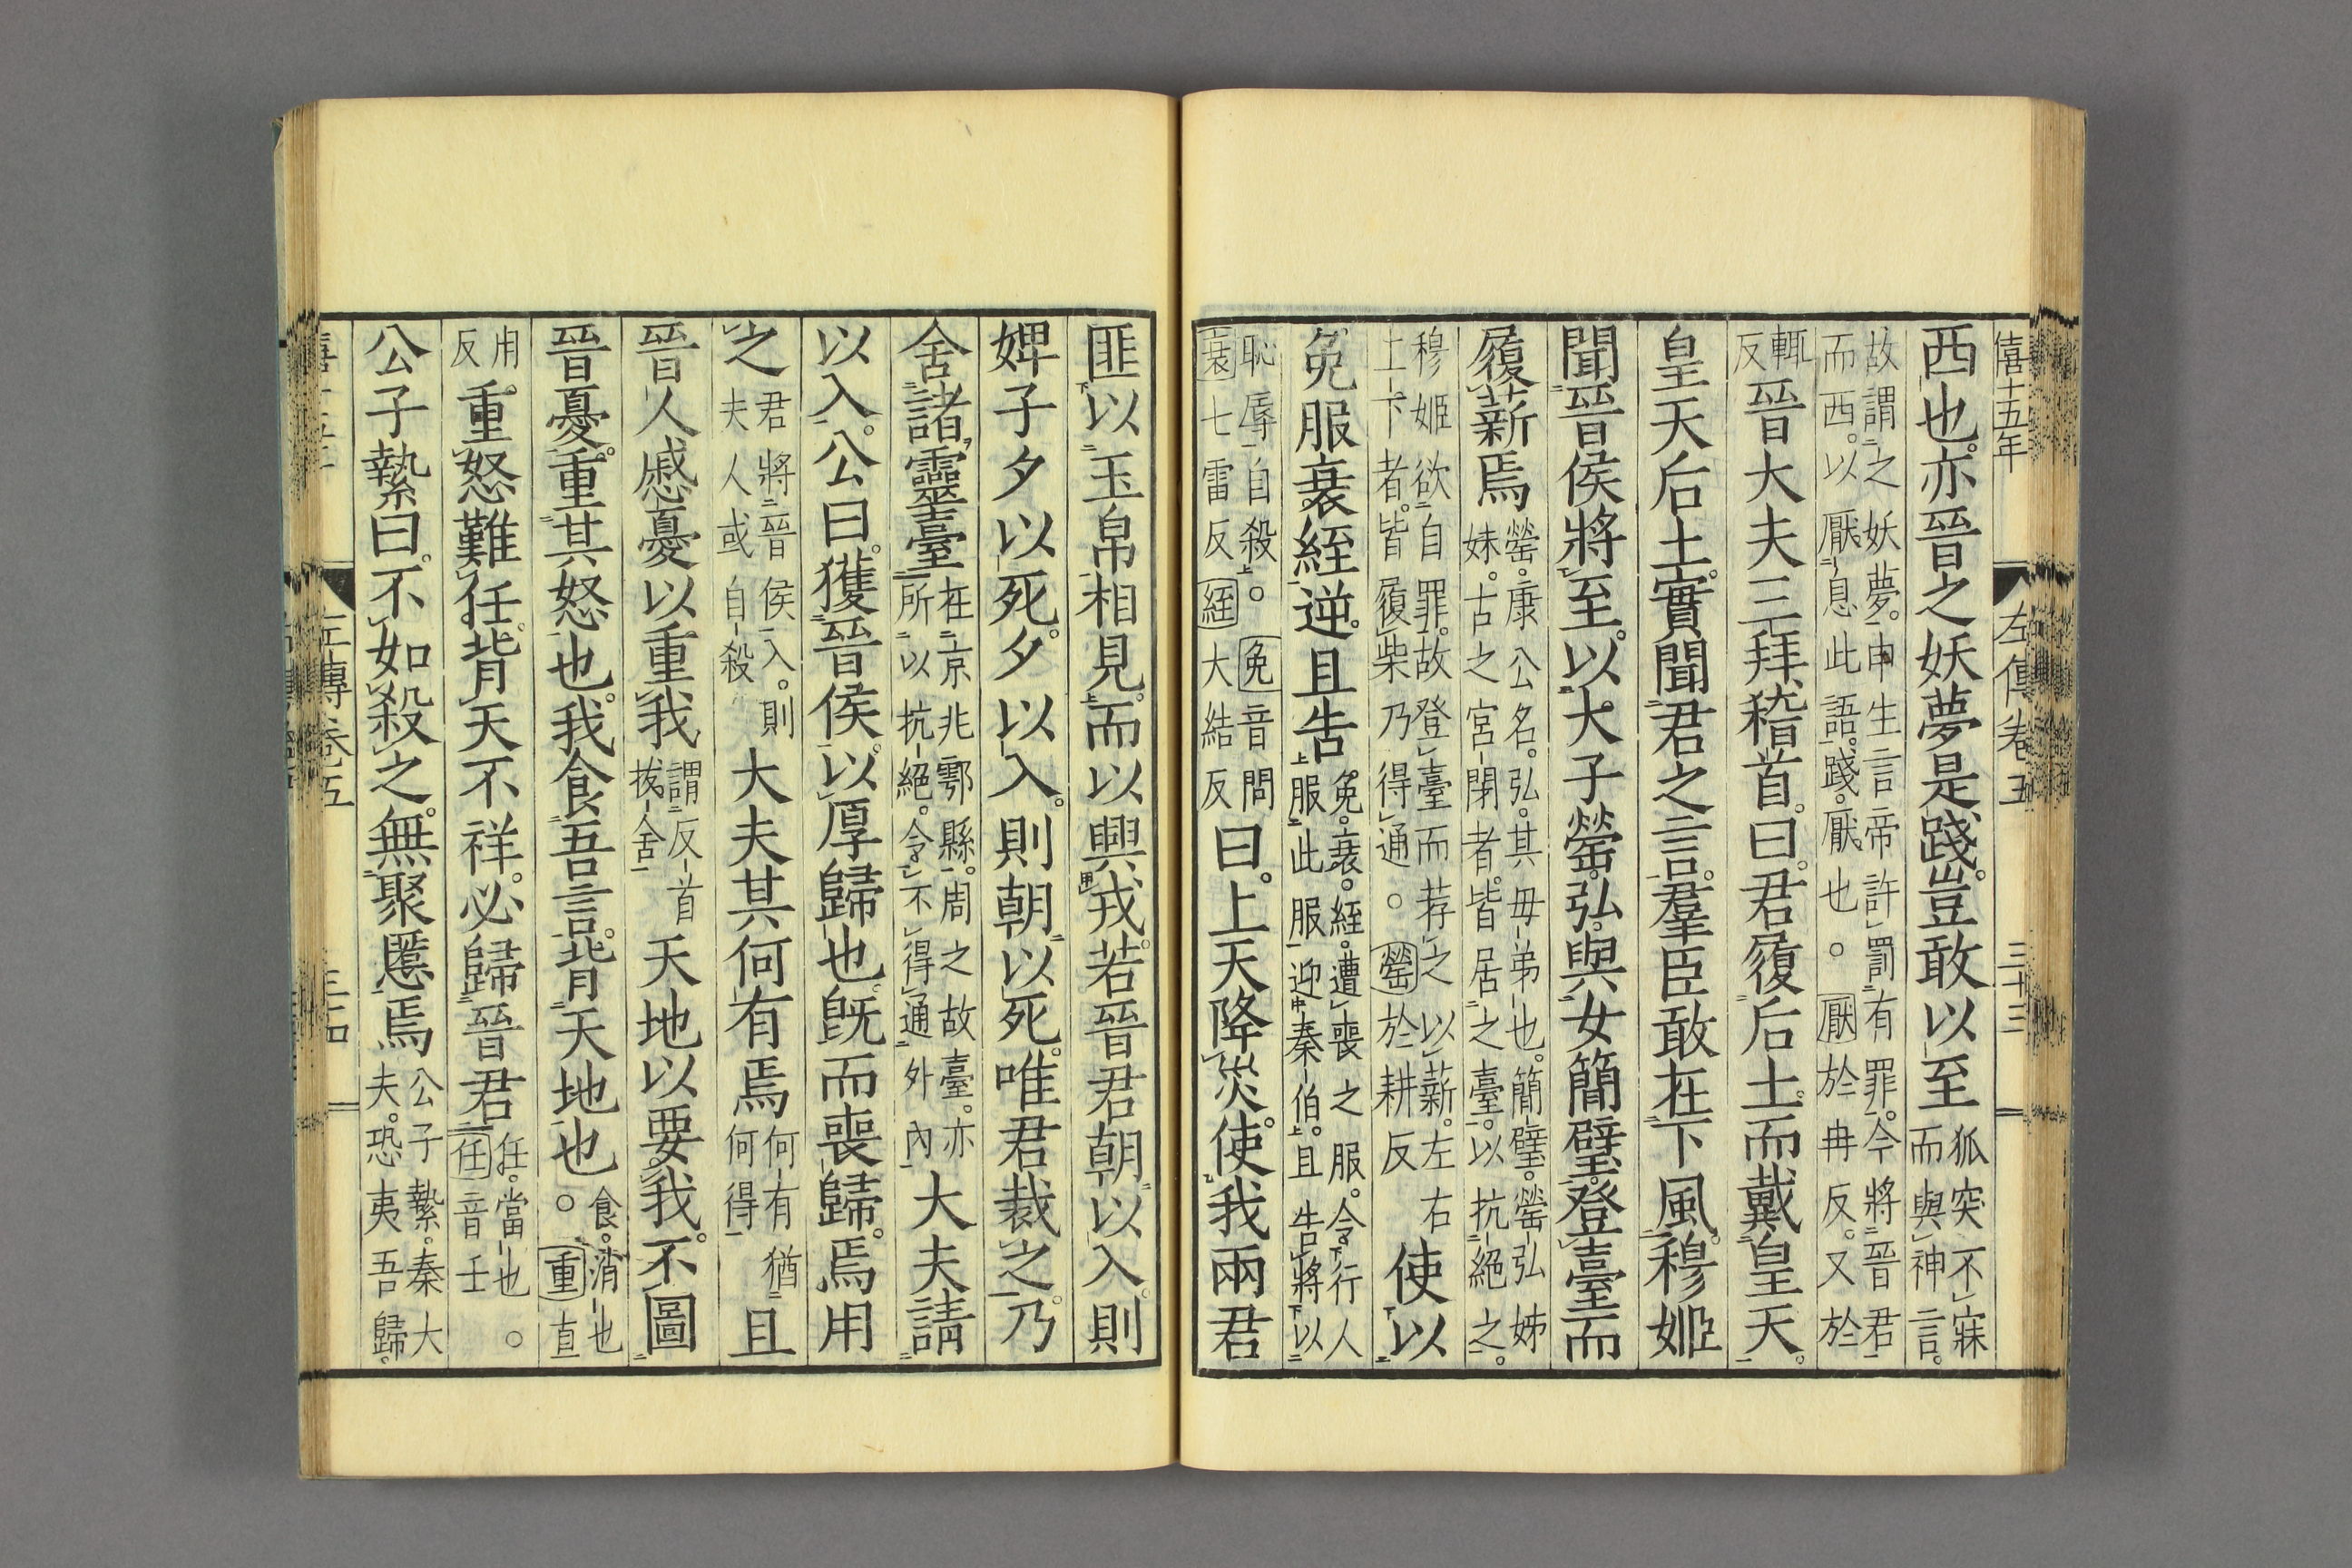 僖十五年　左傳卷五　三十三
西也。亦晉之妖夢是踐。豈敢以至狐突不寐
而與神言。
故謂之妖夢。申生言帝許罰有罪。今將晉君
而西。以厭息此語。踐。厭也。厭於冉反。又於
輒反晉大夫三拜稽首。曰。君履后土。而戴皇天。
皇天后土。實聞君之言。羣臣敢在下風。穆姬
聞晉侯將至。以大子罃弘。與女簡璧。登臺而
履薪焉罃。康公名。弘。其毋弟也。簡璧。罃弘姊
妹。古之宮閉者。皆居之臺。以抗絕之。
穆姬欲自罪。故登臺而荐之以薪。左右
上下者。皆履柴乃得通。罃於耕反使以
免服衰絰逆。且告免。衰。絰。遭喪之服。令行人
服此服迎秦伯。且告將以
恥辱自殺。免音問
衰七雷反絰大結反曰。上天降災。使我兩君
匪以玉帛相見。而以興戎。若晉君朝以入。則
婢子夕以死。夕以入。則朝以死。唯君裁之。乃
舍諸靈臺在京兆鄠縣。周之故臺。亦
所以抗絕。令不得通外內大夫請
以入。公曰。獲晉侯。以厚歸也。旣而喪歸。焉用
之君將晉侯入。則
夫人或自殺大夫其何有焉何有猶
何得且
晉人慼憂以重我謂反首
拔舍天地以要我。不圖
晉憂。重其怒也。我食吾言。背天地也。食。消也
重直
用反重怒難任。背天不祥。必歸晉君任。當也。
任音壬
公子縶曰。不如殺之。無聚慝焉公子縶。秦大
夫。恐夷吾歸。
左傳卷五